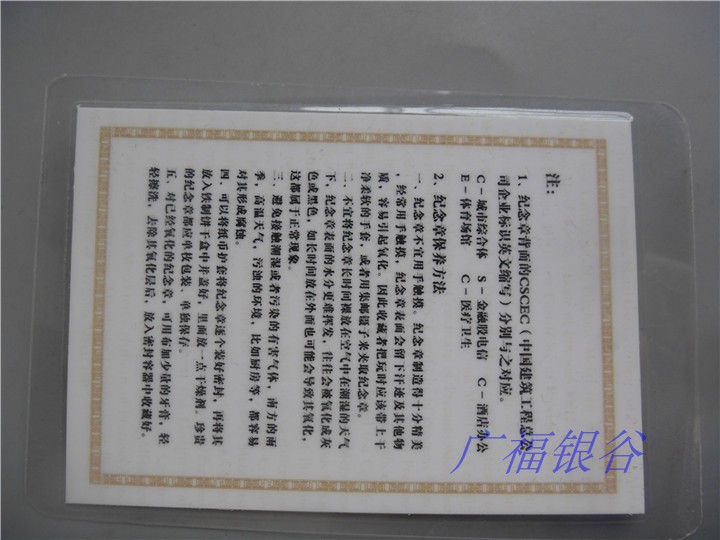 注：
1、纪念章背面的CSCEC（中国建筑工程总公
司企业标识英文缩写）分别与之对应。
C－城市综合体 S－金融股电信 C－酒店办公
E－体育场馆 C－医疗卫生
2、纪念章保养方法
一、纪念章不宜用手触摸。纪念章制造得十分精美
，经常用手触摸，纪念章表面会留下汗迹及其他物
质，容易引起氧化。因此收藏者把玩时应该带上干
净柔软的手套，或者用集邮镊子来夹取纪念章。
二、不宜将纪念章长时间裸放在空气中在潮湿的天气
下，纪念章表面的水分更难挥发，往往会被氧化成灰
色或黑色，如长时间放在外面也可能会导致其氧化，
这都属于正常现象。
三、避免接触潮湿或者污染的有害气体，南方的雨
季，高温天气，污浊的环境，比如厨房等，都容易
对其形成腐蚀。
四、可以将纸币护套将纪念章逐个装好密封，再将其
放入铁制饼干盒中并盖好，里面放一点干燥剂。珍贵
的纪念章都应单枚包装、单独保存。
五、对已经氧化的纪念章，可用布加少量的牙膏，轻
轻擦洗，去除其氧化层后，放入密封容器中收藏好。
广福银谷